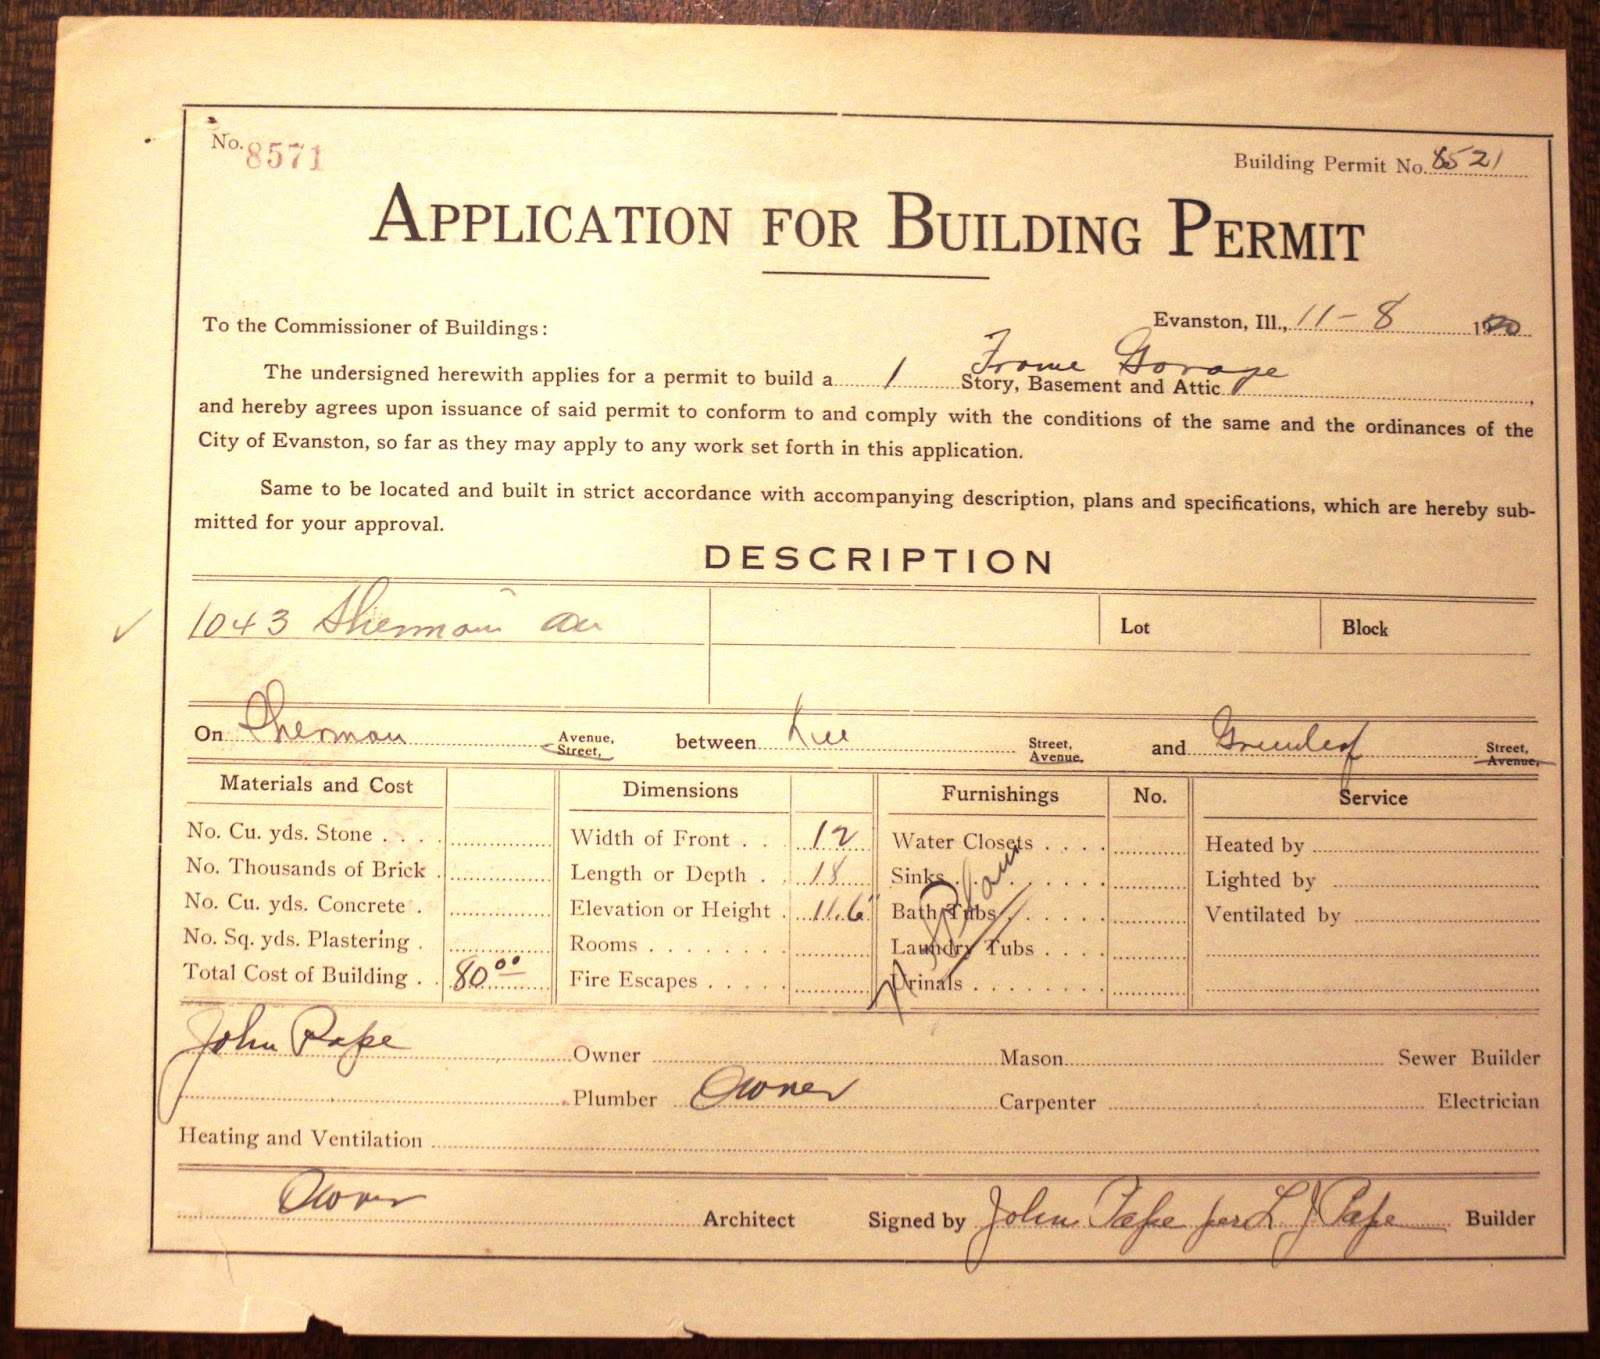 No. 8571
Building Permit No. 8521
APPLICATION FOR BUILDING PERMIT
To the Commissioner of Buildings:
Evanston, Ill., 11-8 1920
The undersigned herewith applies for a permit to build a 1 Story, Basement and Attic Frame Garage,
and hereby agrees upon issuance of said permit to conform to and comply with the conditions of the same and the ordinances of the
City of Evanston, so far as they may apply to any work set forth in this application.
Same to be located and built in strict accordance with accompanying description, plans and specifications, which are hereby sub-
mitted for your approval.
DESCRIPTION
1043 Sherman Ave
Lot
Block
On Sherman Avenue, Street, between Lee Street, Avenue, and Greenleaf Street, Avenue,
Materials and Cost
Dimensions
Furnishings
No.
Service
No. Cu. yds. Stone
Width of Front 12
Water Closets
Heated by
No. Thousands of Brick
Length or Depth 18
Sinks
Lighted by
No. Cu. yds. Concrete
Elevation or Height 11.6"
Bath Tubs
Ventilated by
No. Sq. yds. Plastering
Rooms
Laundry Tubs
Total Cost of Building 80.00
Fire Escapes
Urinals
John Pape Owner
Mason
Sewer Builder
Plumber
Owner Carpenter
Electrician
Heating and Ventilation
Owner Architect
Signed by John Pape per L J Pape Builder